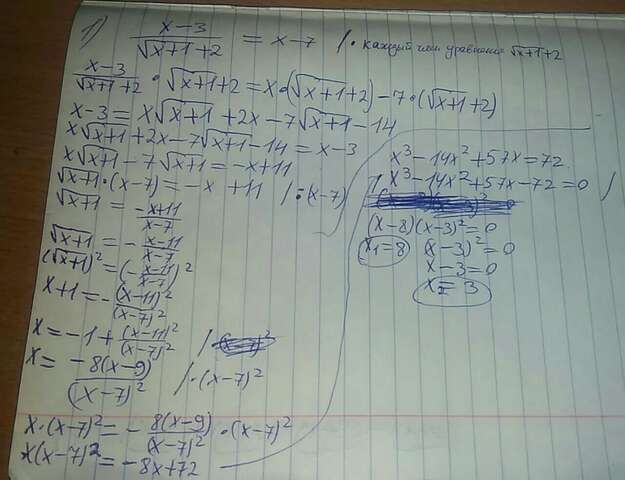 1) x-3/(√x+1+2) = x-7 /· каждый член уравнения √x+1+2
x-3/(√x+1+2) · √x+1+2 = x·(√x+1+2)-7·(√x+1+2)
x-3 = x√x+1+2x-7√x+1-14
x√x+1+2x-7√x+1-14=x-3
x√x+1-7√x+1=-x+11
√x+1·(x-7)=-x+11 /:(x-7)
√x+1 = -x+11/(x-7)
√x+1 = -x-11/(x-7)
(√x+1)²=(-x-11/(x-7))²
x+1=-(x-11)²/(x-7)²
x=-1+(x-11)²/(x-7)² /
x= -8(x-9)/(x-7)² /·(x-7)²
x·(x-7)²=-8(x-9)/(x-7)²·(x-7)²
x(x-7)²=-8x+72
x³-14x²+57x=72
x³-14x²+57x-72=0 /
(x-8)(x-3)²=0
x₁=8 (x-3)²=0
x-3=0
x₂=3